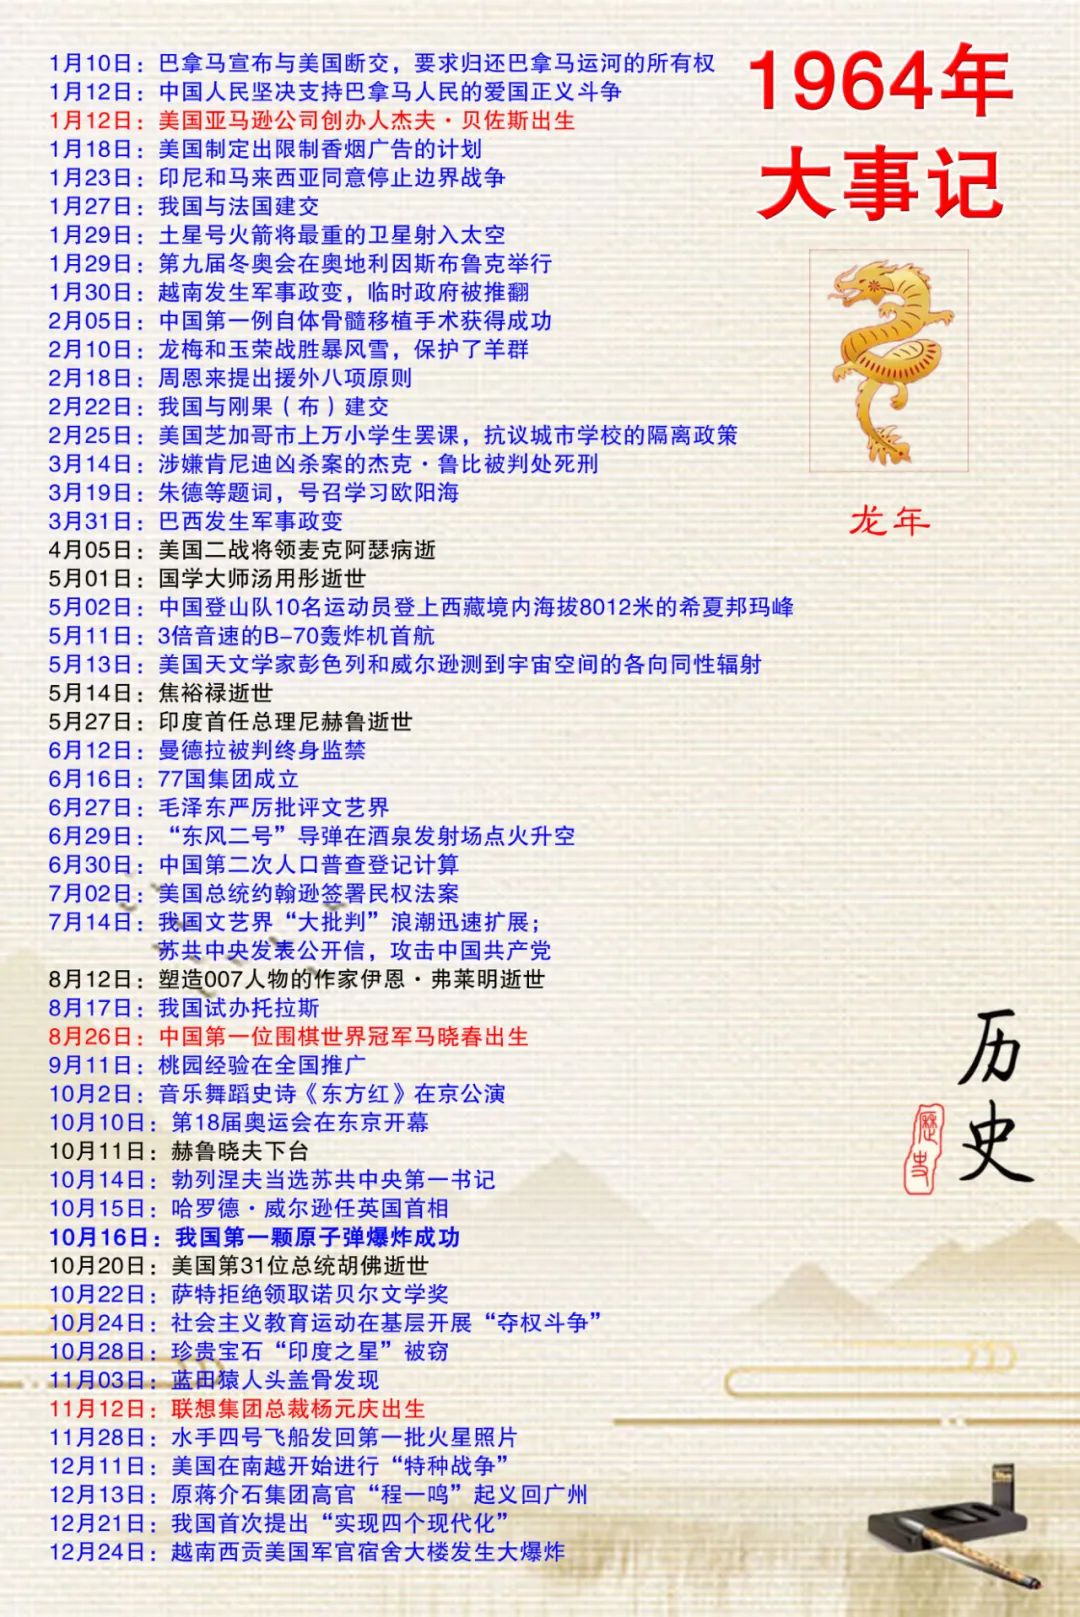 1964年
大事记
1月10日：巴拿马宣布与美国断交，要求归还巴拿马运河的所有权
1月12日：中国人民坚决支持巴拿马人民的爱国正义斗争
1月12日：美国亚马逊公司创办人杰夫·贝佐斯出生
1月18日：美国制定出限制香烟广告的计划
1月23日：印尼和马来西亚同意停止边界战争
1月27日：我国与法国建交
1月29日：土星号火箭将最重的卫星射入太空
1月29日：第九届冬奥会在奥地利因斯布鲁克举行
1月30日：越南发生军事政变，临时政府被推翻
2月05日：中国第一例自体骨髓移植手术获得成功
2月10日：龙梅和玉荣战胜暴风雪，保护了羊群
2月18日：周恩来提出援外八项原则
2月22日：我国与刚果（布）建交
2月25日：美国芝加哥市上万小学生罢课，抗议城市学校的隔离政策
3月14日：涉嫌肯尼迪凶杀案的杰克·鲁比被判处死刑
3月19日：朱德等题词，号召学习欧阳海
3月31日：巴西发生军事政变
4月05日：美国二战将领麦克阿瑟病逝
5月01日：国学大师汤用彤逝世
5月02日：中国登山队10名运动员登上西藏境内海拔8012米的希夏邦玛峰
5月11日：3倍音速的B-70轰炸机首航
5月13日：美国天文学家彭色列和威尔逊测到宇宙空间的各向同性辐射
5月14日：焦裕禄逝世
5月27日：印度首任总理尼赫鲁逝世
6月12日：曼德拉被判终身监禁
6月16日：77国集团成立
6月27日：毛泽东严厉批评文艺界
6月29日：“东风二号”导弹在酒泉发射场点火升空
6月30日：中国第二次人口普查登记计算
7月02日：美国总统约翰逊签署民权法案
7月14日：我国文艺界“大批判”浪潮迅速扩展；
苏共中央发表公开信，攻击中国共产党
8月12日：塑造007人物的作家伊恩·弗莱明逝世
8月17日：我国试办托拉斯
8月26日：中国第一位围棋世界冠军马晓春出生
9月11日：桃园经验在全国推广
10月2日：音乐舞蹈史诗《东方红》在京公演
10月10日：第18届奥运会在东京开幕
10月11日：赫鲁晓夫下台
10月14日：勃列涅夫当选苏共中央第一书记
10月15日：哈罗德·威尔逊任英国首相
10月16日：我国第一颗原子弹爆炸成功
10月20日：美国第31位总统胡佛逝世
10月22日：萨特拒绝领取诺贝尔文学奖
10月24日：社会主义教育运动在基层开展“夺权斗争”
10月28日：珍贵宝石“印度之星”被窃
11月03日：蓝田猿人头盖骨发现
11月12日：联想集团总裁杨元庆出生
11月28日：水手四号飞船发回第一批火星照片
12月11日：美国在南越开始进行“特种战争”
12月13日：原蒋介石集团高官“程一鸣”起义回广州
12月21日：我国首次提出“实现四个现代化”
12月24日：越南西贡美国军官宿舍大楼发生大爆炸
龙年
历史
歷史